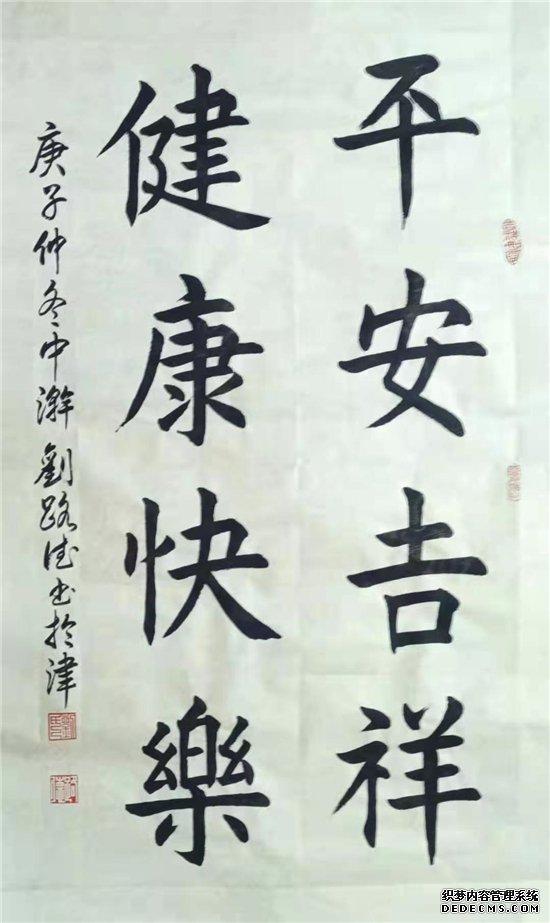 平安吉祥
健康快樂
庚子仲冬中澣劉路德书於津
织梦内容管理系统
DEDECMS.COM